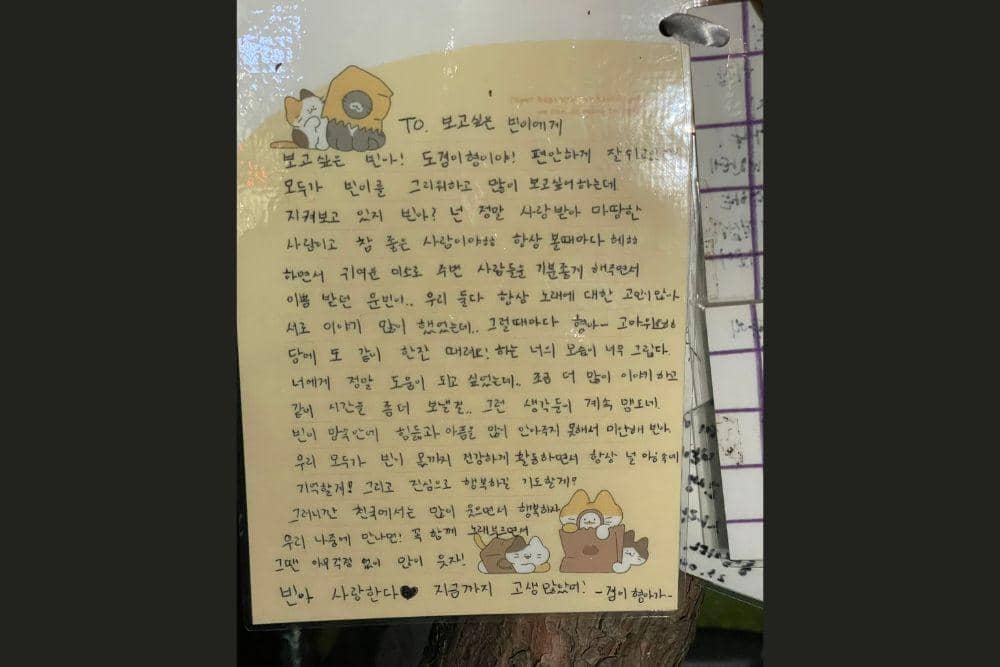 TO. 보고싶은 빈이에게
보고싶은 빈아! 도겸이형이야! 편안하게 잘 쉬고
모두가 빈이를 그리워하고 많이 보고싶어하는데
지켜보고 있지 빈아? 넌 정말 사랑받아 마땅한
사람이고 참 좋은 사람이야ㅎㅎ 항상 볼때마다 헤헤
하면서 귀여운 미소로 주변 사람들을 기분좋게 해주면서
이쁨 받던 문빈이.. 우리 둘다 항상 노래에 대한 고민이 많아
서로 이야기 많이 했었는데.. 그럴때마다 형아~ 고마워요ㅎㅎ
담에 또 같이 한잔 때려요! 하는 너의 모습이 너무 그립다.
너에게 정말 도움이 되고 싶었는데.. 조금 더 많이 이야기 하고
같이 시간을 좀더 보낼걸.. 그런 생각들이 계속 맴도네.
빈이 맘속안에 힘듦과 아픔을 많이 안아주지 못해서 미안해 빈아.
우리 모두가 빈이 몫까지 건강하게 활동하면서 항상 널 마음속에
기억할게! 그리고 진심으로 행복하길 기도할게?
그러니깐 천국에서는 많이 웃으면서 행복하자
우리 나중에 만나면! 꼭 함께 노래부르면서
그땐 아무걱정 없이 많이 웃자!
빈아 사랑한다♥ 지금까지 고생많았어! -겸이 형아가-